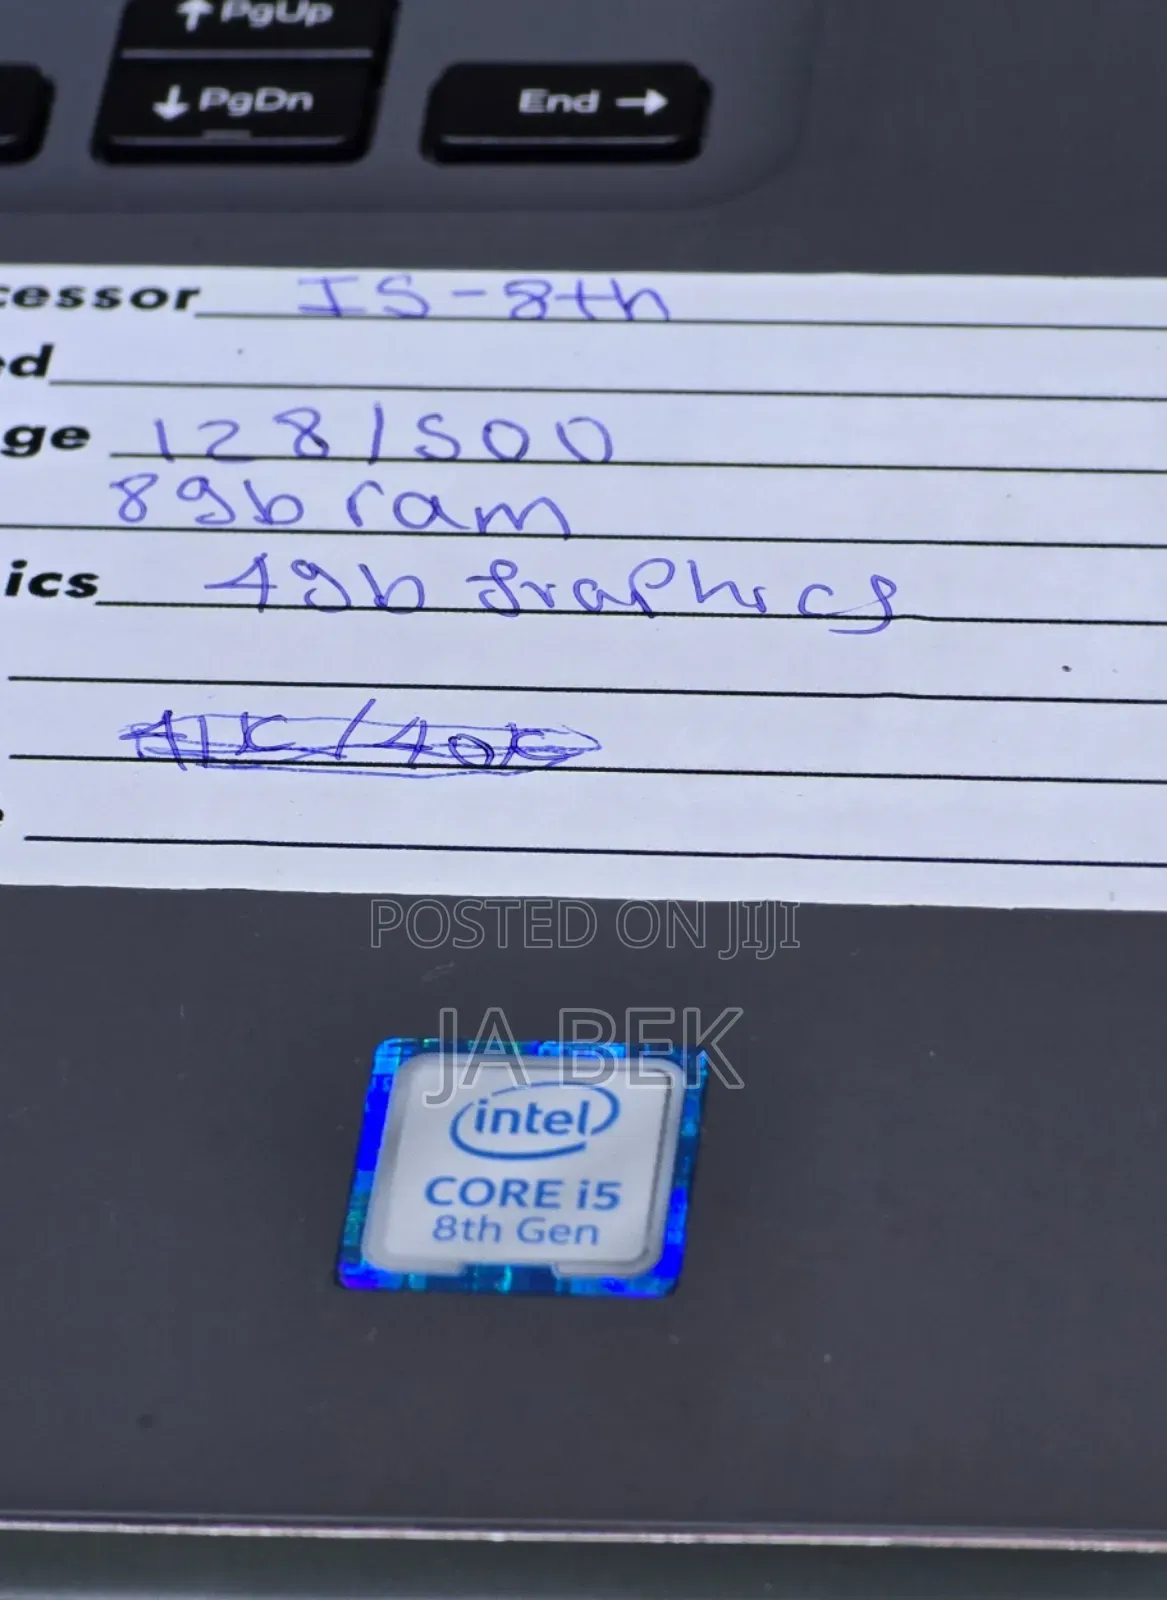 ↑ PgUp
↓ PgDn
End →
cessor IS-8th
ed
ge 128/500
8gb ram
ics 4gb graphics
41K/40K
POSTED ON JIJI
JA BEK
intel
CORE i5
8th Gen